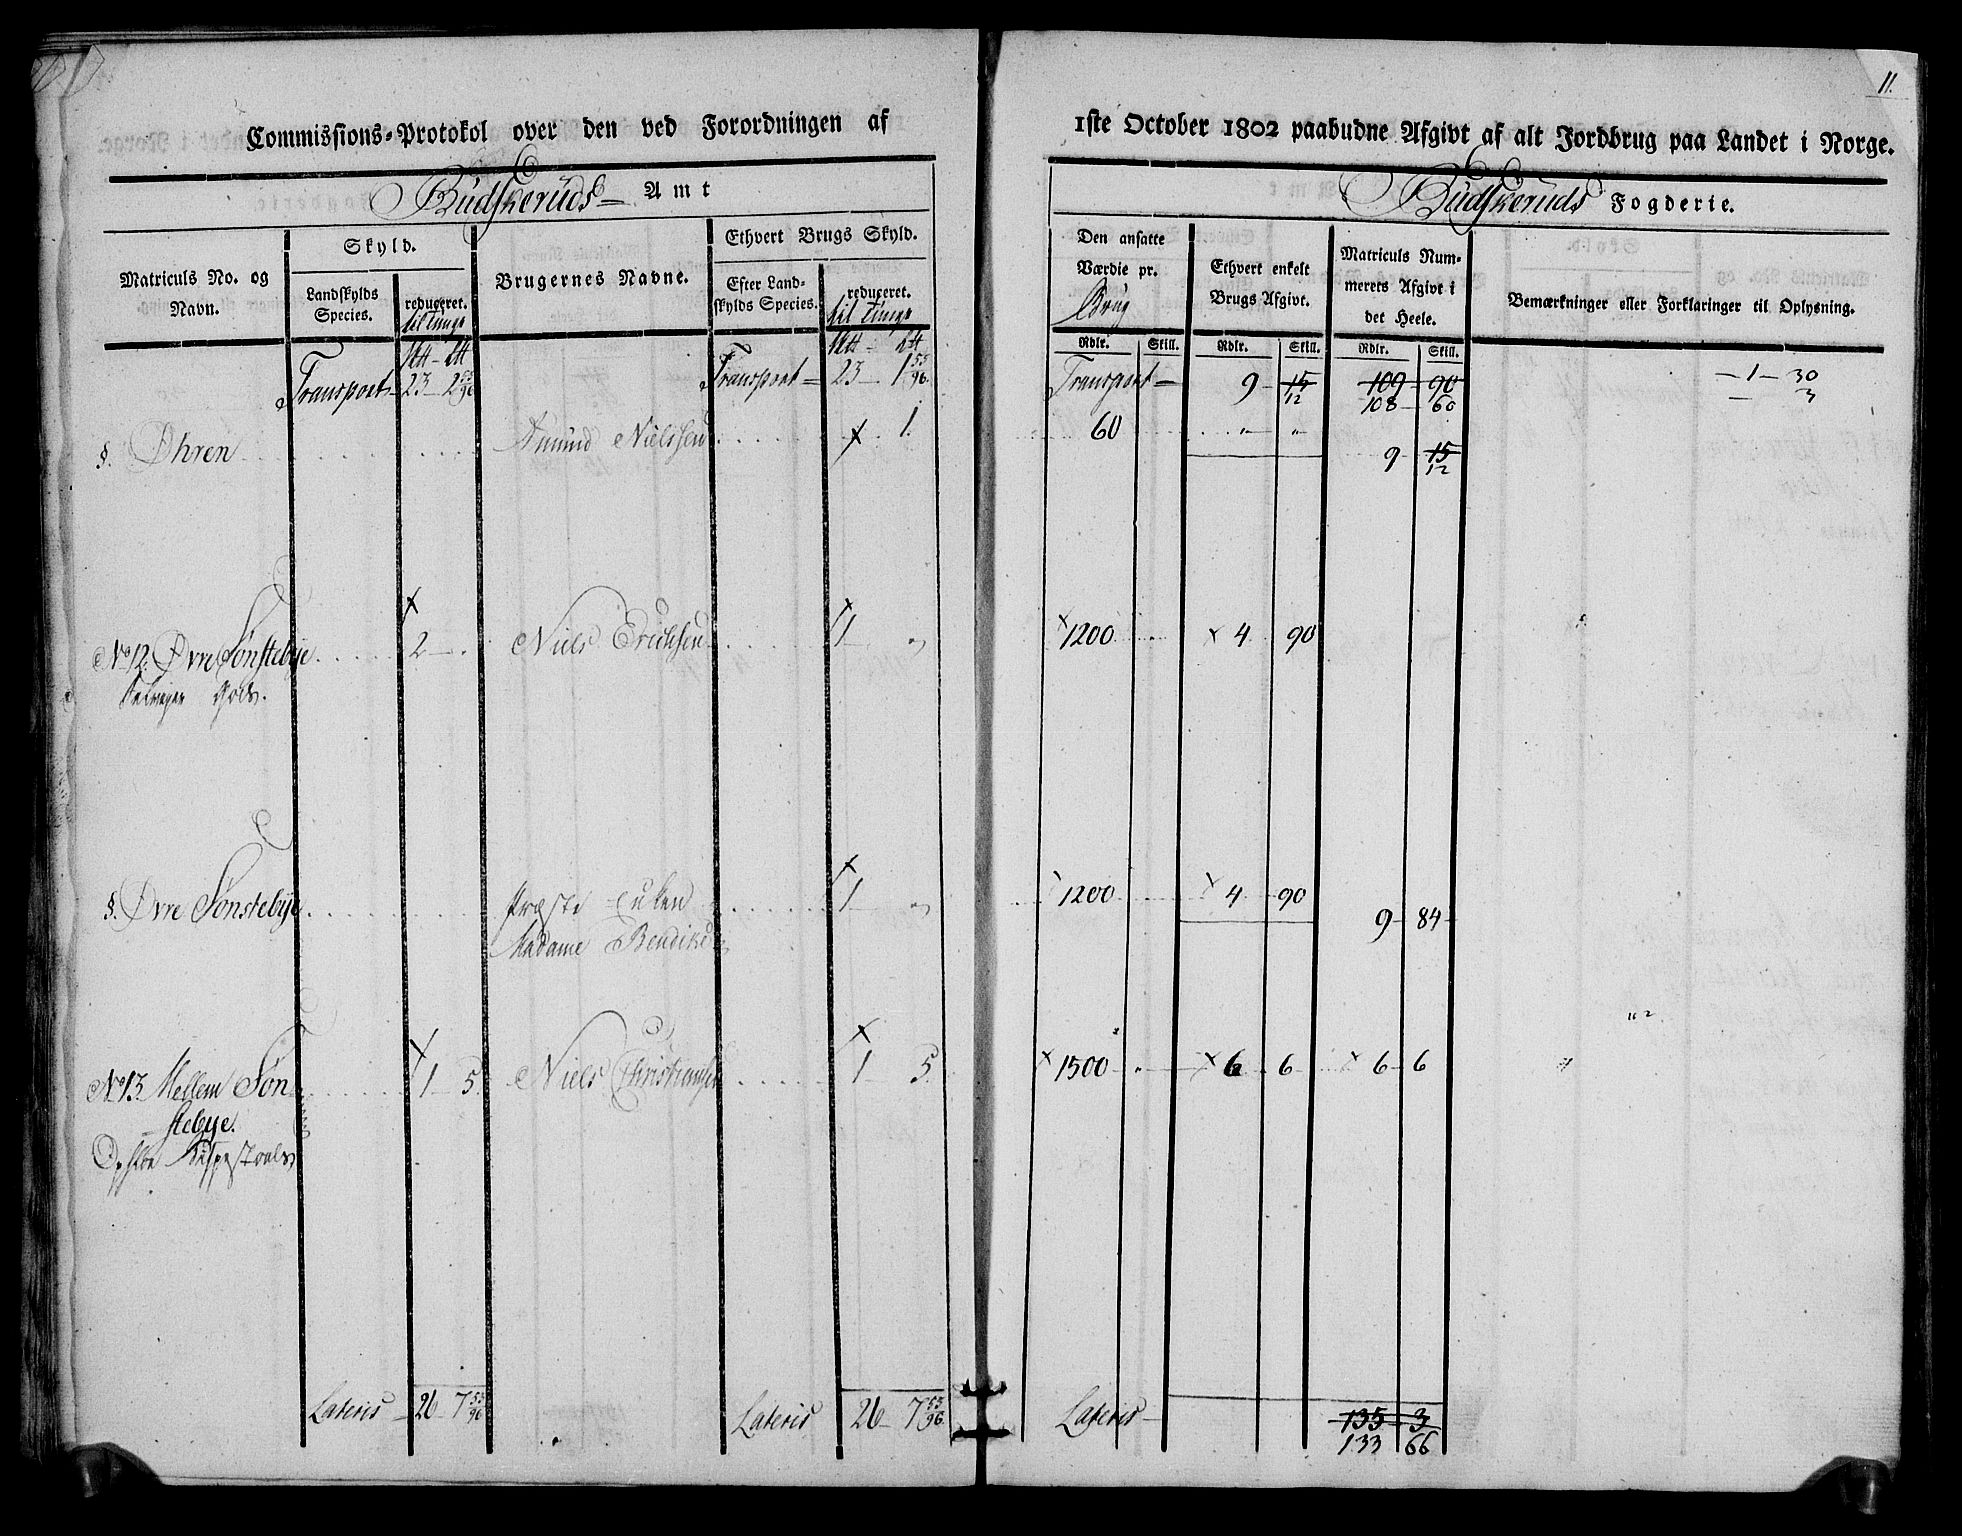 11.
Commissions-Protokol over den ved Forordningen af 1ste October 1802 paabudne Afgivt af alt Jordbrug paa Landet i Norge.
Budskeruds Amt
Budskeruds Fogderie.
Matriculs No. og Navn.
Skyld.
Landskylds Species.
reduceret. til Tunge
Brugernes Navne.
Ethvert Brugs Skyld.
Efter Landskylds Species.
reduceret. til Tunge
Den ansatte Værdie pr. Brug
Ethvert enkelt Brugs Afgivt.
Matriculs Nummerets Afgivt i det Heele.
Bemærkninger eller Forklaringer til Oplysning.
Rdlr. Skill. Rdlr. Skill. Rdlr. Skill.
Transport 23 2 55/96 Transport 23 1 55/96 Transport 9 15 109 90 1 30
12 108 60 3
§. Øhren Amund Nielssen x 1. 60 " " 9 15
12
No 12. Øvre Sønstebye x 2 Niels Erichsen x 1 " x 1200 x 4 90
Gods.
§. Øvre Sønstebye Præste Enken x 1 " 1200 x 4 90 9 84
Madame Bendike
No 13. Mellem Søn x 1 5 Niels Christiansen x 1 5 x 1500 x 6 6 x 6 6
stebye.
Lateris 26 7 53/96 Lateris 26 7 53/96 Lateris 135 3
133 66